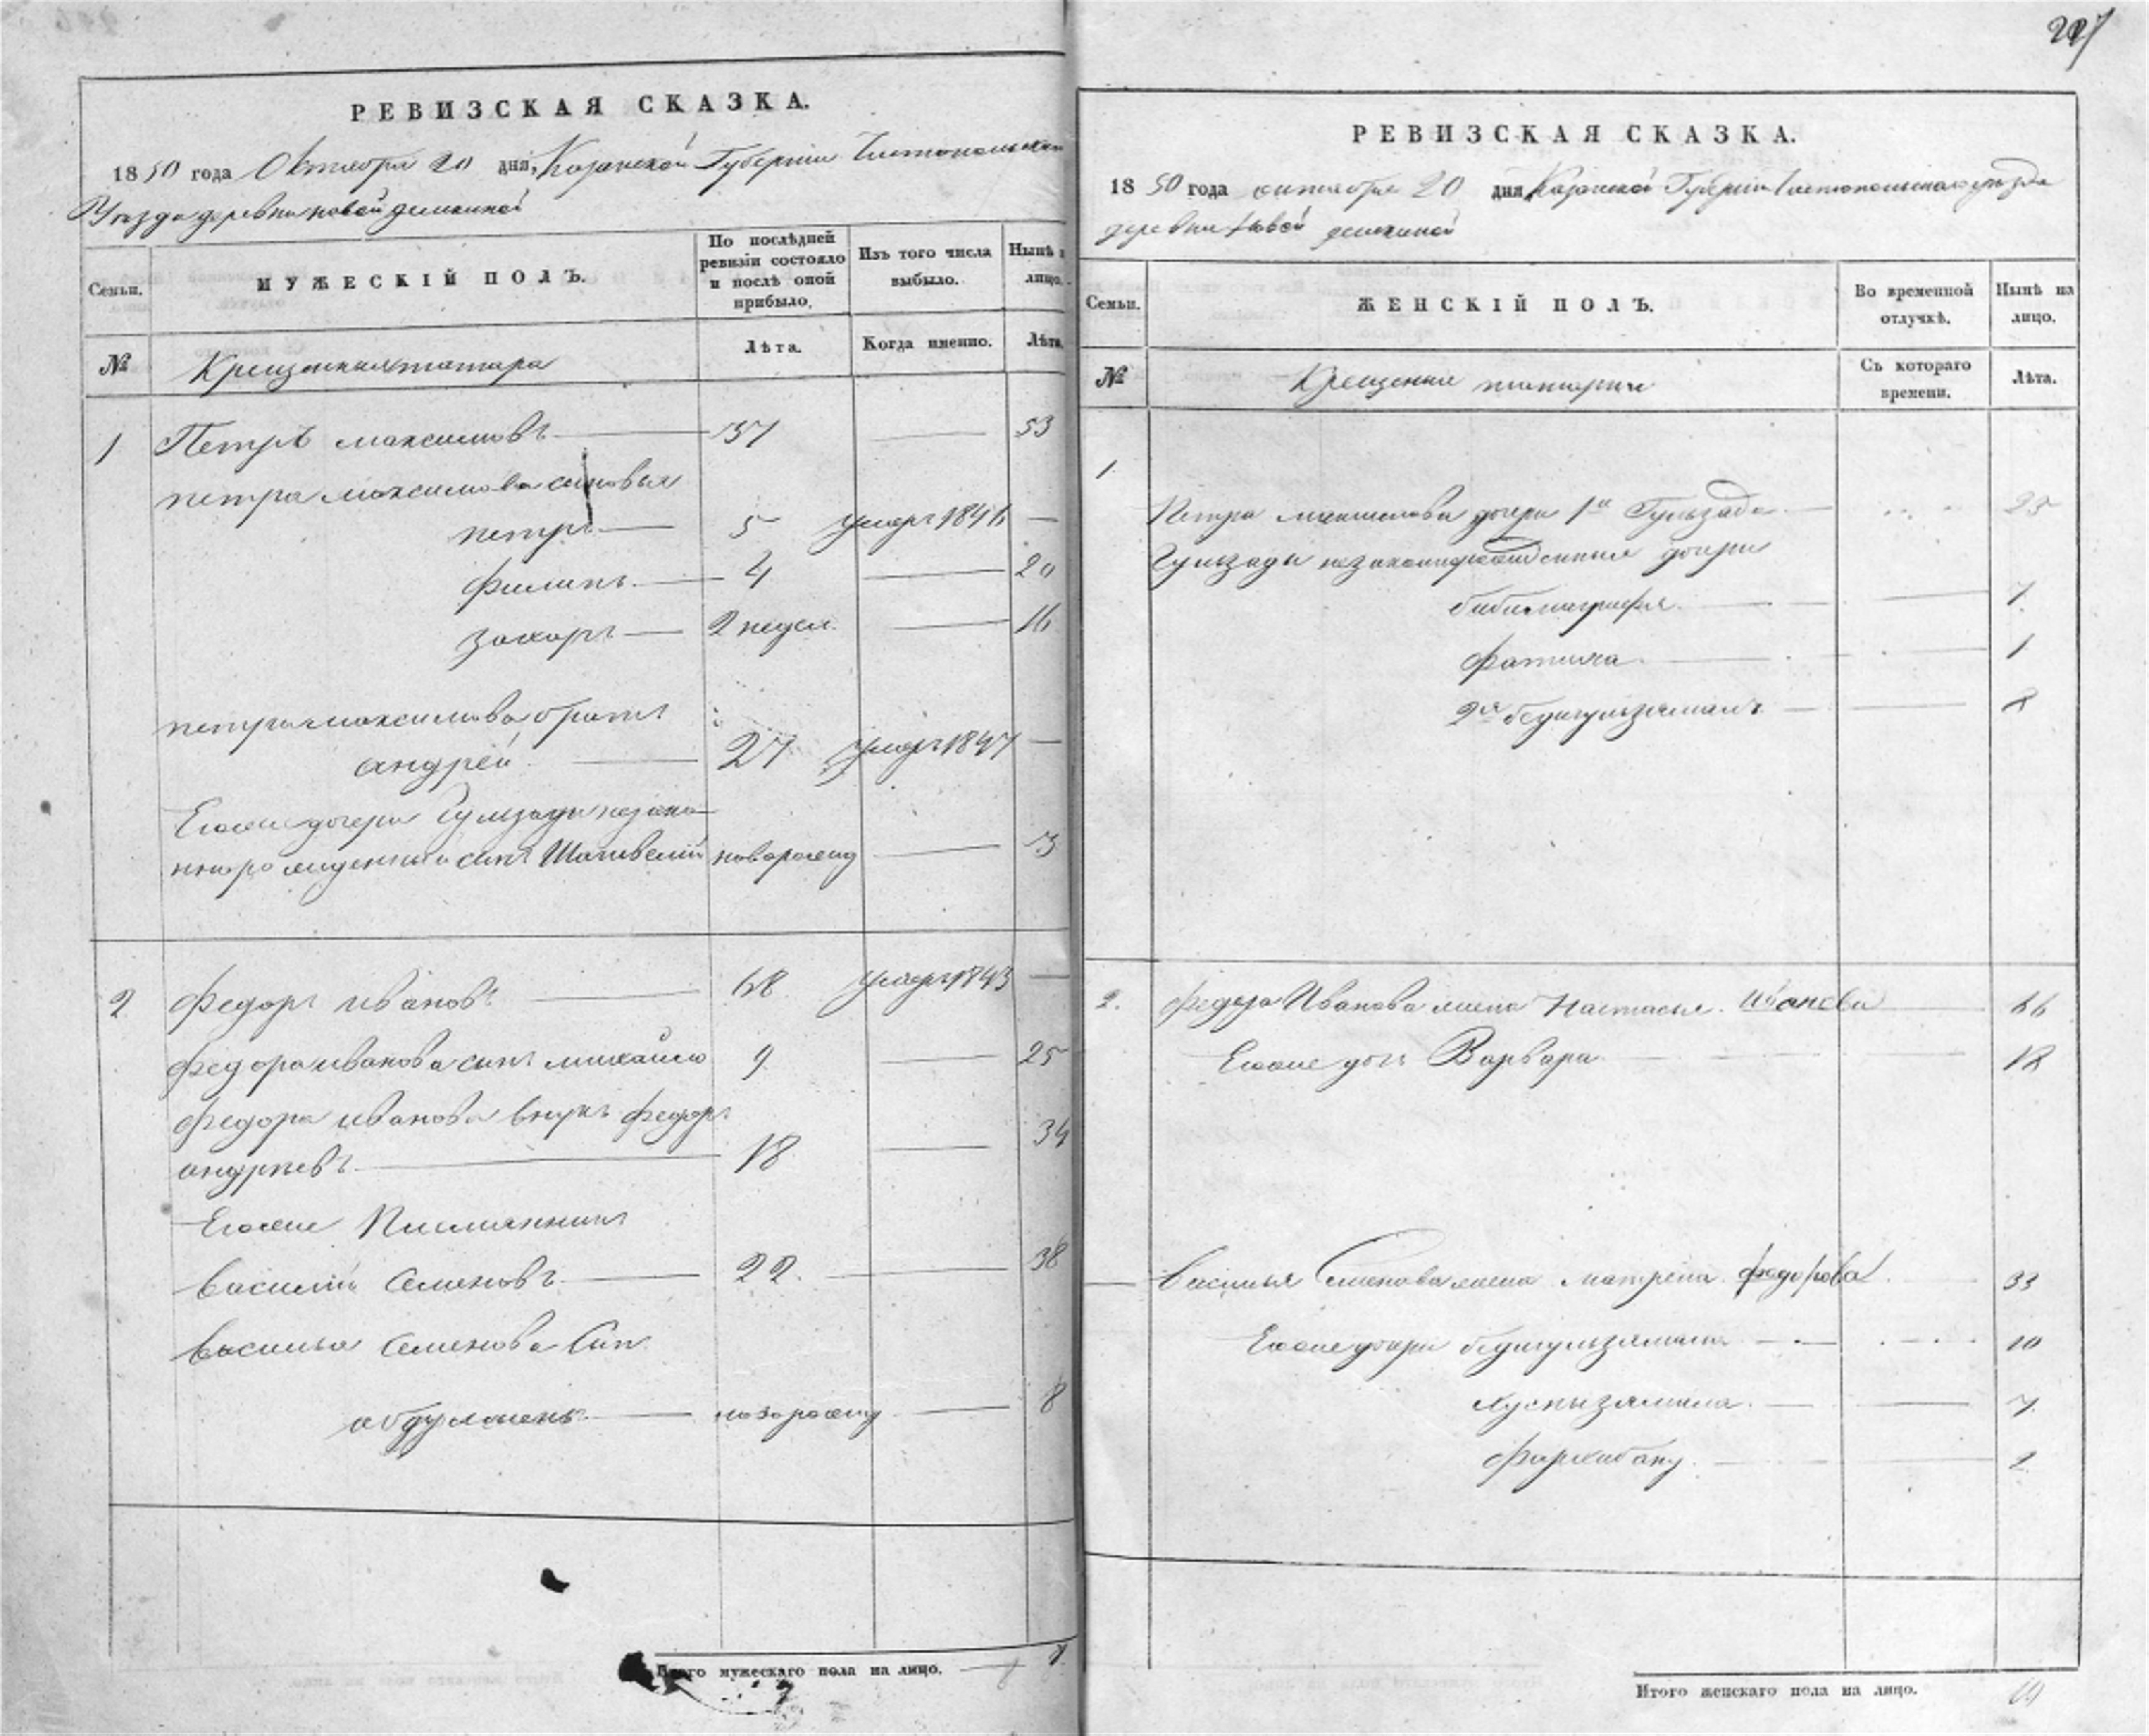 227
РЕВИЗСКАЯ СКАЗКА.
1850 года Октября 20 дня, Казанской Губернии Чистопольскаго
Уезда деревни новой демкиной
Семьи. МУЖЕСКІЙ ПОЛЪ. По послѣдней ревизіи состояло и послѣ оной прибыло. Изъ того числа выбыло. Нынѣ на лицо.
№ Крещеныя татара Лѣта. Когда именно. Лѣта.
1 Петръ максимовъ 37 53
петра максимова сыновья
петръ 5 умеръ 1846
филипъ 4 20
захаръ 2 недел. 16
петра максимова братъ
андрей 27 умеръ 1847
Егоже дочери Гулзады незако-
ннорожденный сынъ Шагивелій новорожд 3
2 Федоръ ивановъ 68 умеръ 1843
федора иванова сынъ михайло 9 25
федора иванова внукъ федоръ
андреевъ 18 34
Егоже Племянникъ
василій семеновъ 22. 38
василья семенова Сын
абдулменъ новорожд 8
Итого мужескаго пола на лицо. 7
РЕВИЗСКАЯ СКАЗКА.
1850 года октября 20 дня, Казанской Губерніи Чистопольскаго уезда
деревни Новой демкиной
Семьи. ЖЕНСКІЙ ПОЛЪ. Во временной отлучкѣ. Нынѣ на лицо.
№ Крещеныя татарки Съ котораго времени. Лѣта.
1
Петра максимова дочери 1я Гульзада 25
Гульзады незаконнорожденныя дочери
7
фатиха 1
2я бедигулзямалъ 8
2. федора Иванова жена Настасья Иванова 66
Егоже дочь Варвара 18
василья Семенова жена матрена федорова 33
Егоже дочери бедигулзямала 10
хуснизямала 7
фархибану 2
Итого женскаго пола на лицо.